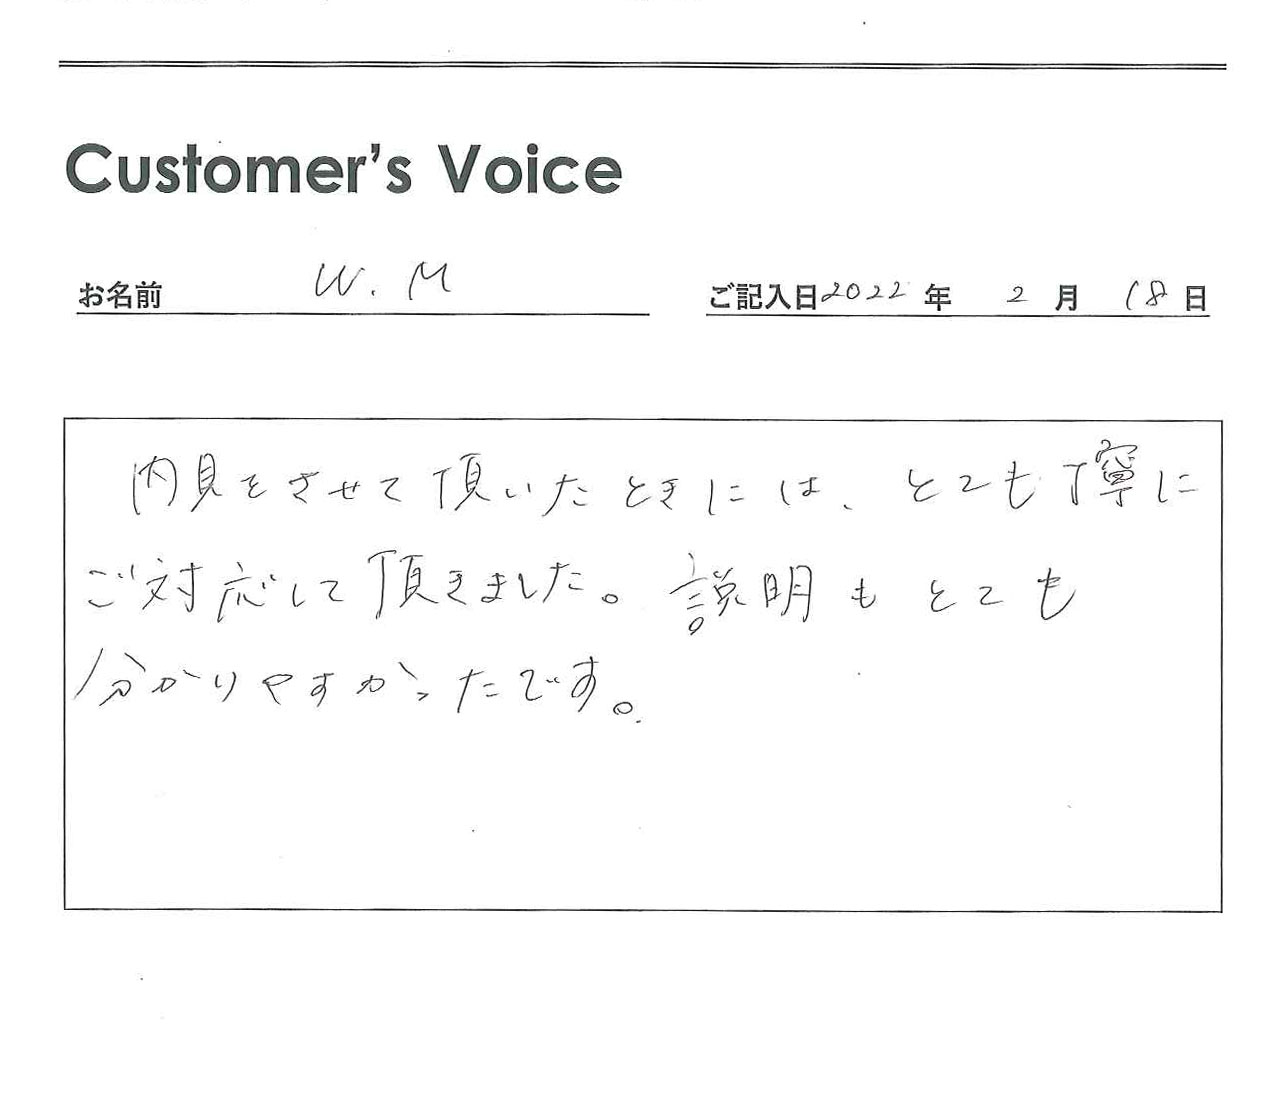 Customer's Voice
お名前 W. M ご記入日2022年 2月 18日
内見をさせて頂いたときには、とても丁寧に
ご対応して頂きました。説明もとても
分かりやすかったです。